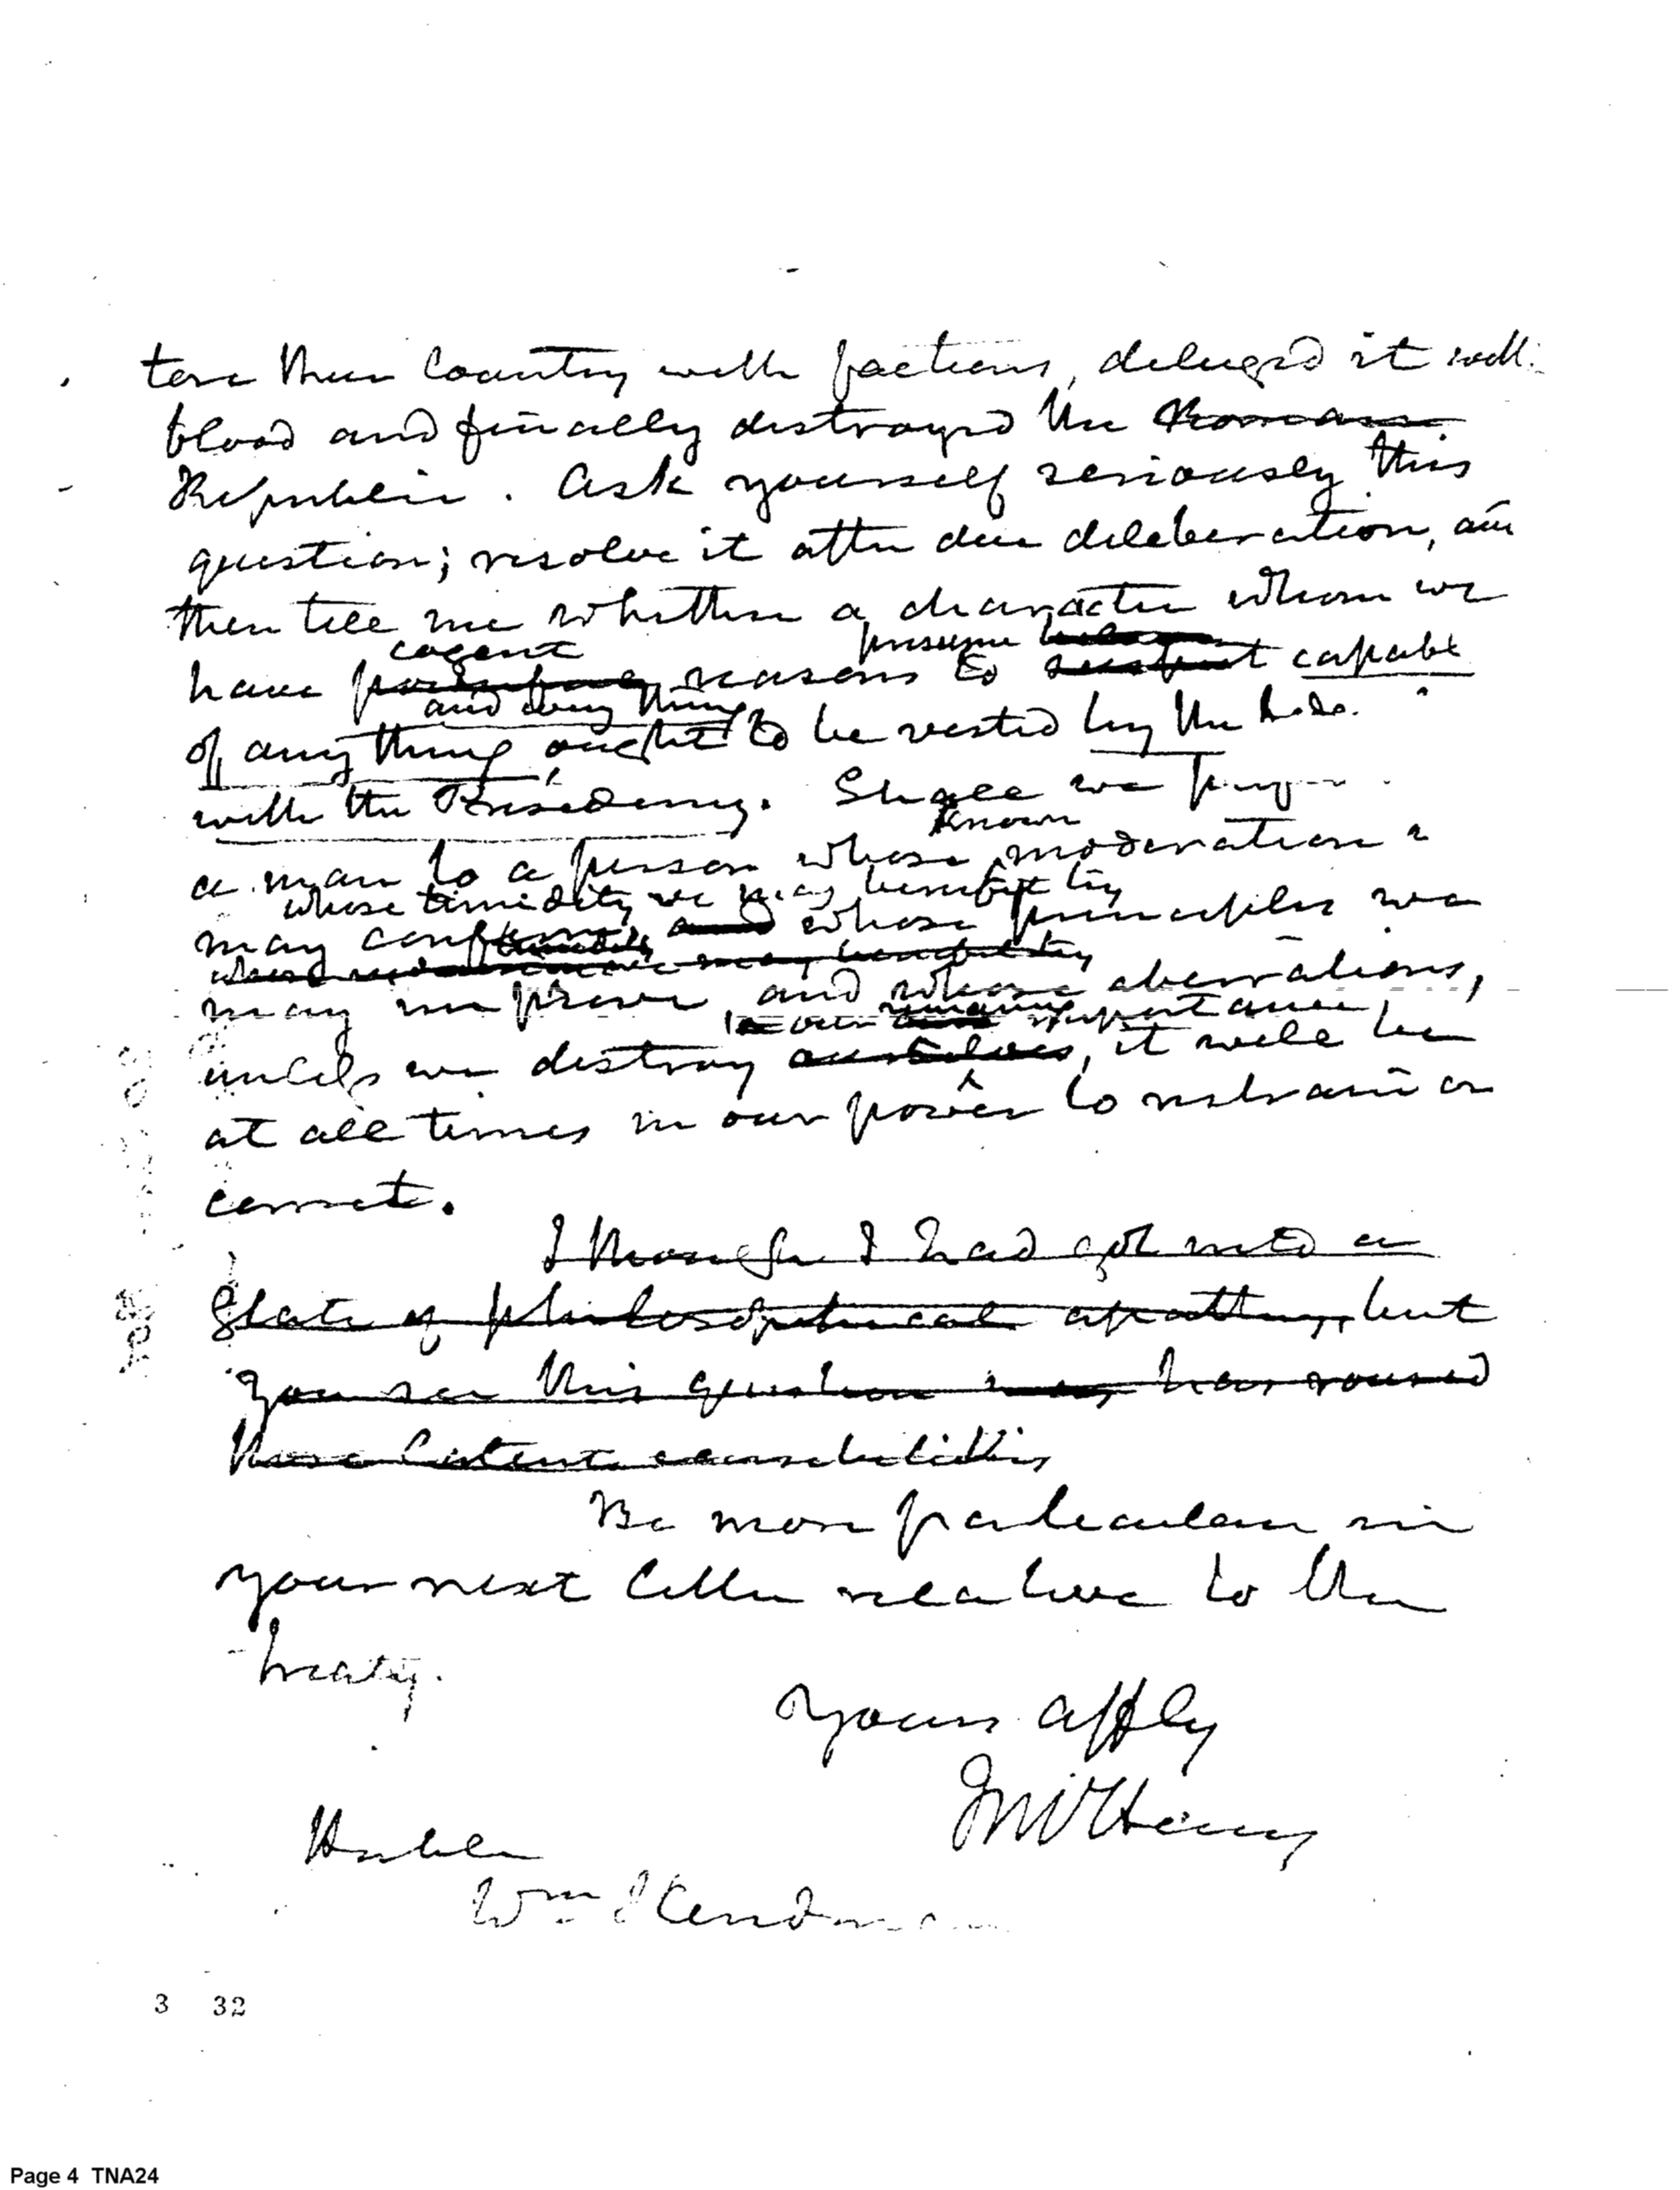 tore their Country with factions, deluged it with
blood and finally destroyed the Roman
Republic. Ask yourself seriously this
question; resolve it after due deliberation, and
then tell me whether a character whom we
cogent presume
have reasons to suspect capable
and every thing
of any thing, ought to be vested by the feds.
with the Presidency. Shall we
known
a man to a person whose moderation
whose timidity we may benefit by
may whose principles we
whose may benefit by
may improve, and whose aberrations,
our remaining importance,
unless we destroy ourselves, it will be
at all times in our power to restrain or
correct.
I though I had got into a
State of philosophical apathy, but
you see this question has roused
these latent sensibilities
Be more particular in
your next letter relative to the
treaty.
Yours affly
JMcHenry
Honble
Wm
3 32
Page 4 TNA24